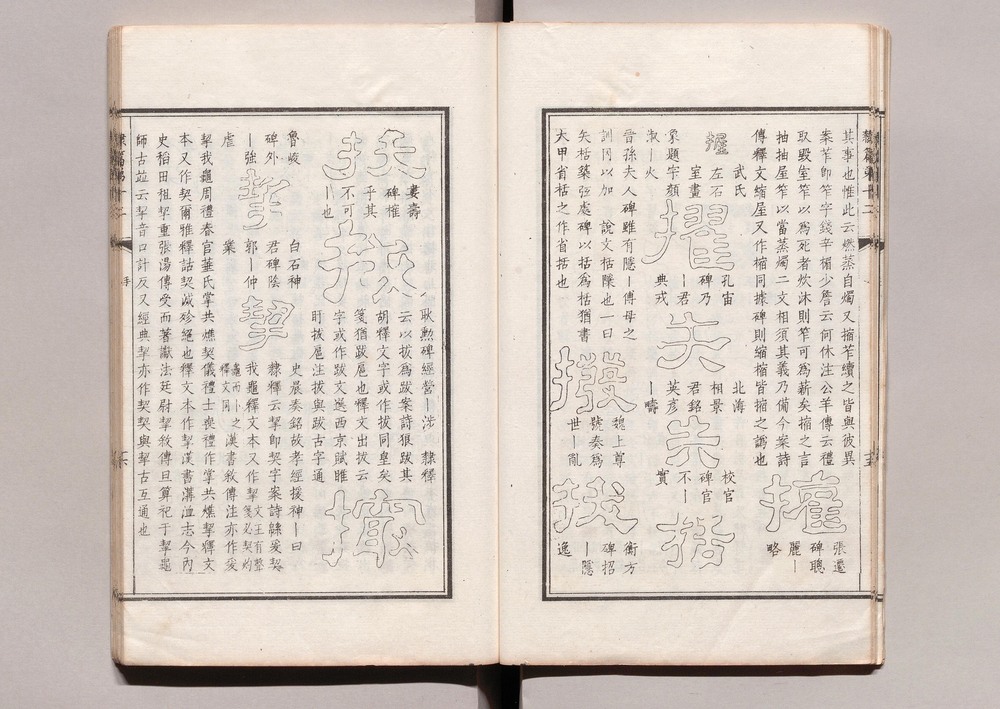 其事也惟此云燃蒸自燭又搚苲續之皆與彼異
案苲即笮字錢辛楣少詹云何休注公羊傳云禮
取毀室笮以為死者炊沐則笮可為薪矣搚之言
抽抽屋笮以當蒸燭二文相須其義乃備今案詩
傳釋文縮屋又作樎同據碑則縮樎皆搚之譌也
攉
張遷
碑聰
麗—
略
握
武氏
左石
室畫
象題字顏
淑—火
擢
孔宙
碑乃
—君
典戎
失
北海
相景
君銘
英彥
—疇
失
校官
碑官
不—
實
括
晉孫夫人碑雖有隱—傅母之
訓冈以加　說文栝檃也一曰
矢栝築弦處碑以括為栝猶書
太甲省栝之作省括也
撥
魏上尊
號奏為
世—亂
拔
衡方
碑招
—隱
逸
拔
婁壽
碑榷
乎其
不可
—也
拔
耿勳碑經營—涉　隸釋
云以拔為跋案詩狼跋其
胡釋文字或作拔同皇矣
箋猶跋扈也釋文出拔云
字或作跋文選西京賦睢
盱拔扈注拔與跋古字通
魯峻
碑外
—強
虐
挈
白石神
君碑陰
郭—仲
業
挈
史晨奏銘故孝經援神—曰
隸釋云挈即契字案詩緜爰契
我龜釋文本又作挈文王有聲箋必契灼
龜而卜之釋文同漢書敘傳注亦作爰
挈我龜周禮春官菙氏掌共燋契儀禮士喪禮作掌共燋挈釋文
本又作契爾雅釋詁契滅殄絕也釋文本作挈漢書溝洫志今內
史稻田租挈重張湯傳受而著讞法廷尉挈敘傳旦算祀于挈龜
師古竝云挈音口計反又經典挈亦作契契與挈古互通也